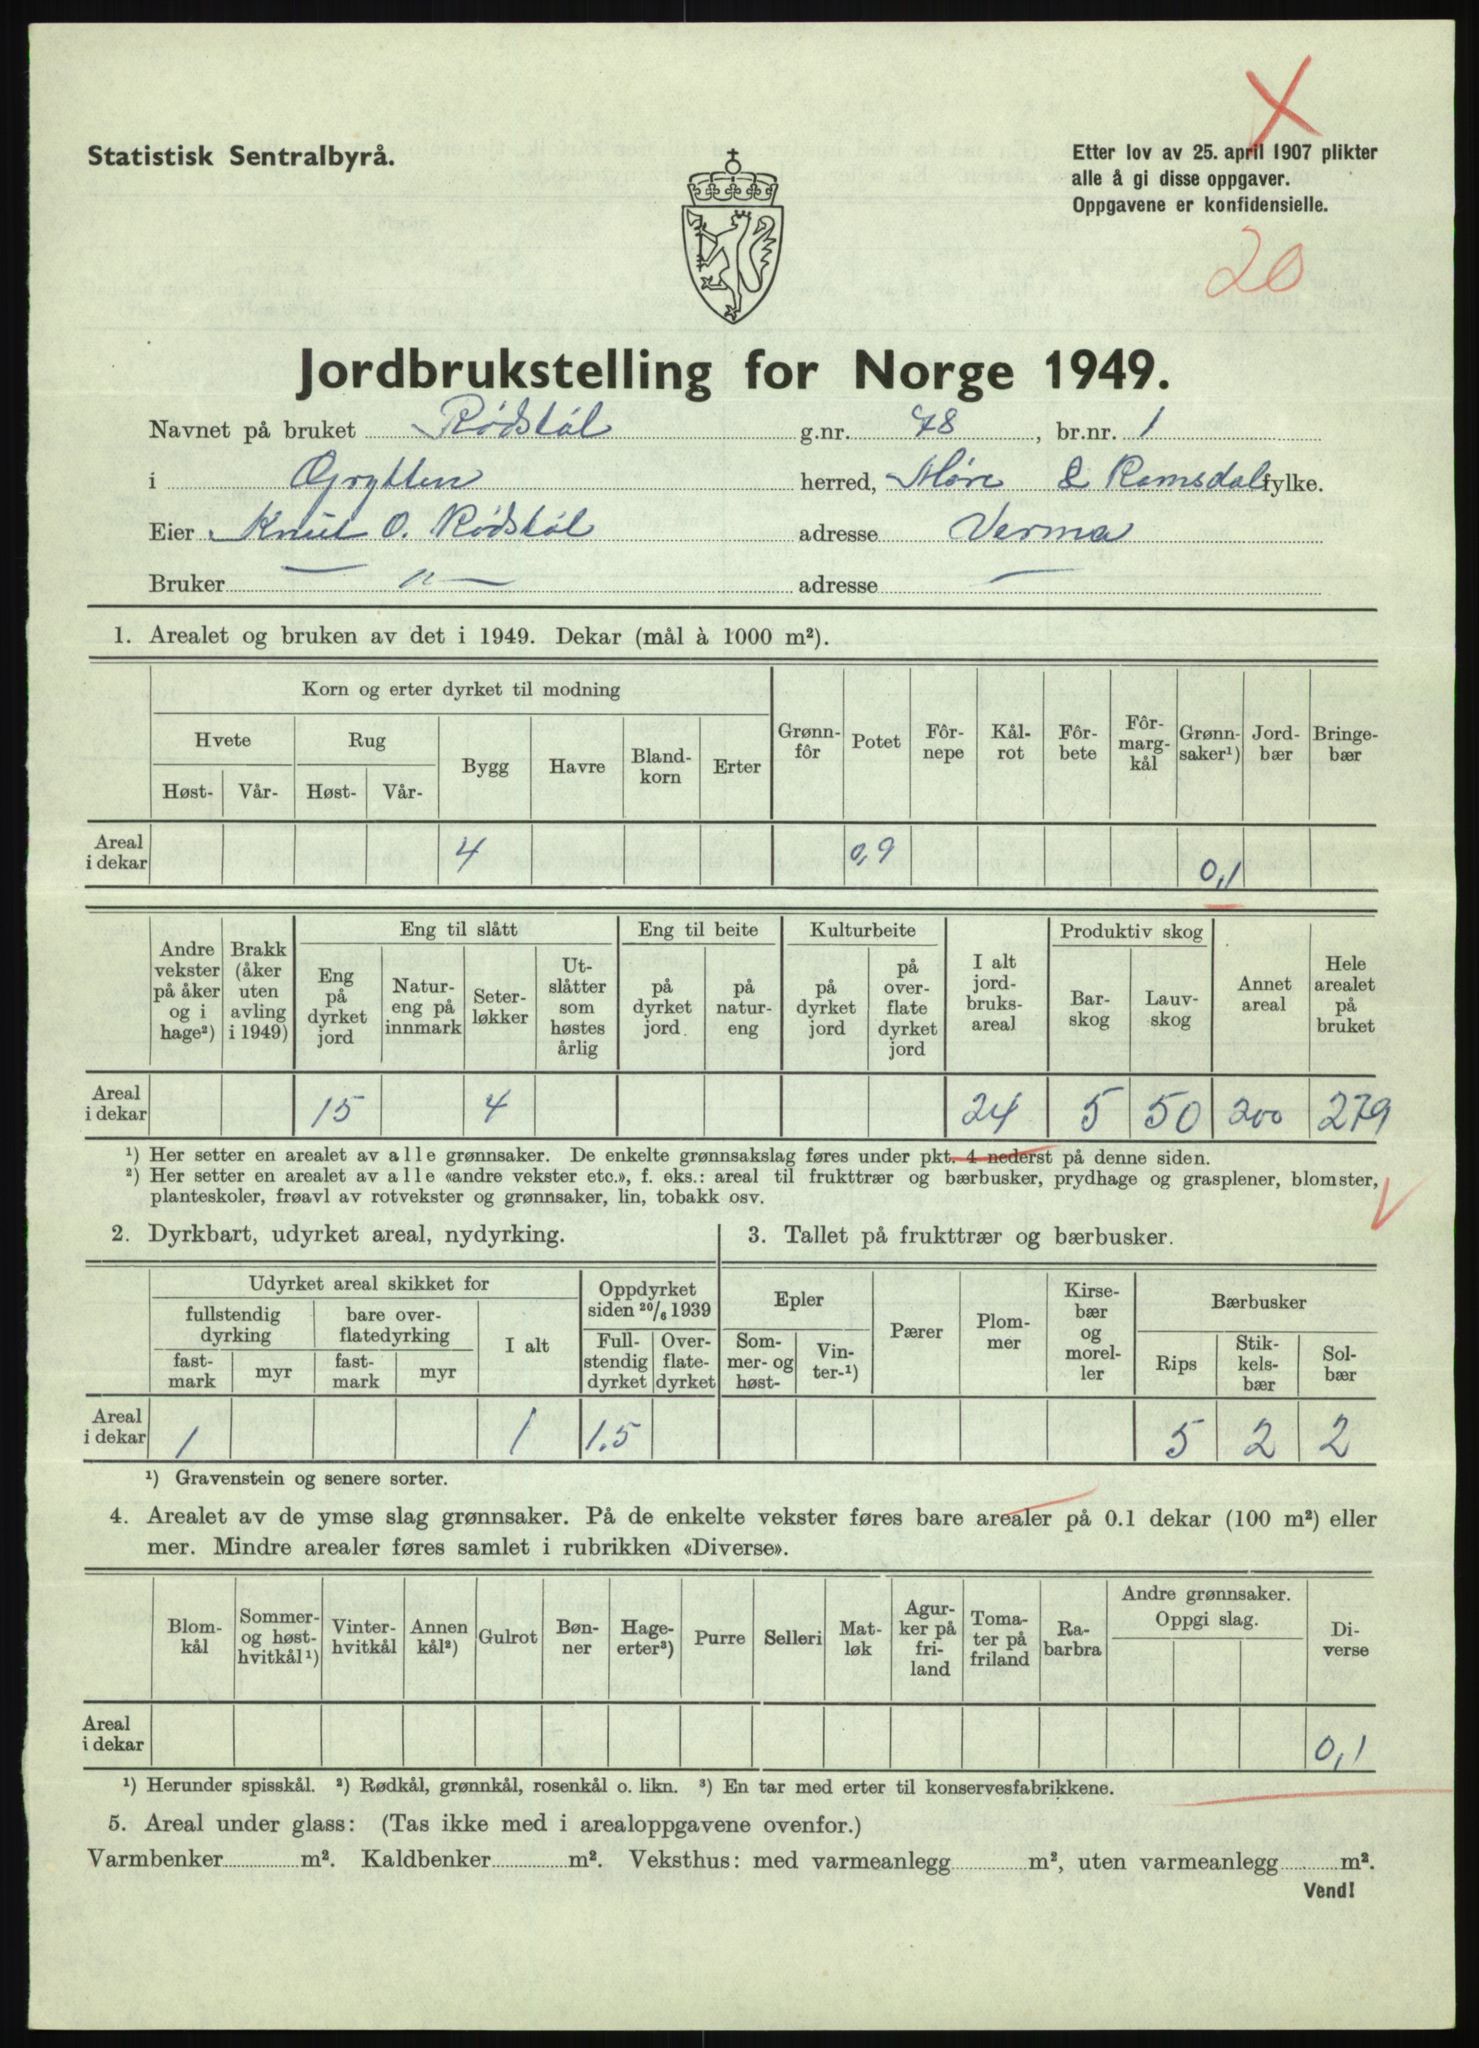 Statistisk Sentralbyrå.
Etter lov av 25. april 1907 plikter
alle å gi disse oppgaver.
Oppgavene er konfidensielle.
20
Jordbrukstelling for Norge 1949.
Navnet på bruket Rødstøl g.nr. 78, br.nr. 1
i Grytten herred, Møre & Romsdal fylke.
Eier Knut O. Rødstøl adresse Verma
Bruker — " — adresse —
1. Arealet og bruken av det i 1949. Dekar (mål à 1000 m²).
Korn og erter dyrket til modning
Hvete Rug Bygg Havre Bland-korn Erter Grønn-fôr Potet Fôr-nepe Kål-rot Fôr-bete Fôr-marg-kål Grønn-saker¹) Jord-bær Bringe-bær
Høst- Vår- Høst- Vår-
Areal i dekar 4 0,9 0,1
Andre vekster på åker og i hage²) Brakk (åker uten avling i 1949) Eng til slått Eng til beite Kulturbeite I alt jord-bruks-areal Produktiv skog Annet areal Hele arealet på bruket
Eng på dyrket jord Natur-eng på innmark Seter-løkker Ut-slåtter som høstes årlig på dyrket jord på natur-eng på dyrket jord på over-flate dyrket jord Bar-skog Lauv-skog
Areal i dekar 15 4 24 5 50 200 279
¹) Her setter en arealet av alle grønnsaker. De enkelte grønnsakslag føres under pkt. 4 nederst på denne siden.
²) Her setter en arealet av alle «andre vekster etc.», f. eks.: areal til frukttrær og bærbusker, prydhage og grasplener, blomster,
planteskoler, frøavl av rotvekster og grønnsaker, lin, tobakk osv.
2. Dyrkbart, udyrket areal, nydyrking.
Udyrket areal skikket for Oppdyrket siden 20/6 1939
fullstendig dyrking bare over-flatedyrking I alt Full-stendig dyrket Over-flate-dyrket
fast-mark myr fast-mark myr
Areal i dekar 1 1 1.5
3. Tallet på frukttrær og bærbusker.
Epler Pærer Plom-mer Kirse-bær og morel-ler Bærbusker
Som-mer- og høst- Vin-ter-¹) Rips Stik-kels-bær Sol-bær
5 2 2
¹) Gravenstein og senere sorter.
4. Arealet av de ymse slag grønnsaker. På de enkelte vekster føres bare arealer på 0.1 dekar (100 m²) eller
mer. Mindre arealer føres samlet i rubrikken «Diverse».
Blom-kål Sommer- og høst-hvitkål¹) Vinter-hvitkål Annen kål²) Gulrot Bøn-ner Hage-erter³) Purre Selleri Mat-løk Agur-ker på fri-land Toma-ter på friland Ra-barbra Andre grønnsaker. Oppgi slag. Di-verse
Areal i dekar 0,1
¹) Herunder spisskål. ²) Rødkål, grønnkål, rosenkål o. likn. ³) En tar med erter til konservesfabrikkene.
5. Areal under glass: (Tas ikke med i arealoppgavene ovenfor.)
Varmbenker m². Kaldbenker m². Veksthus: med varmeanlegg m², uten varmeanlegg m².
Vend!